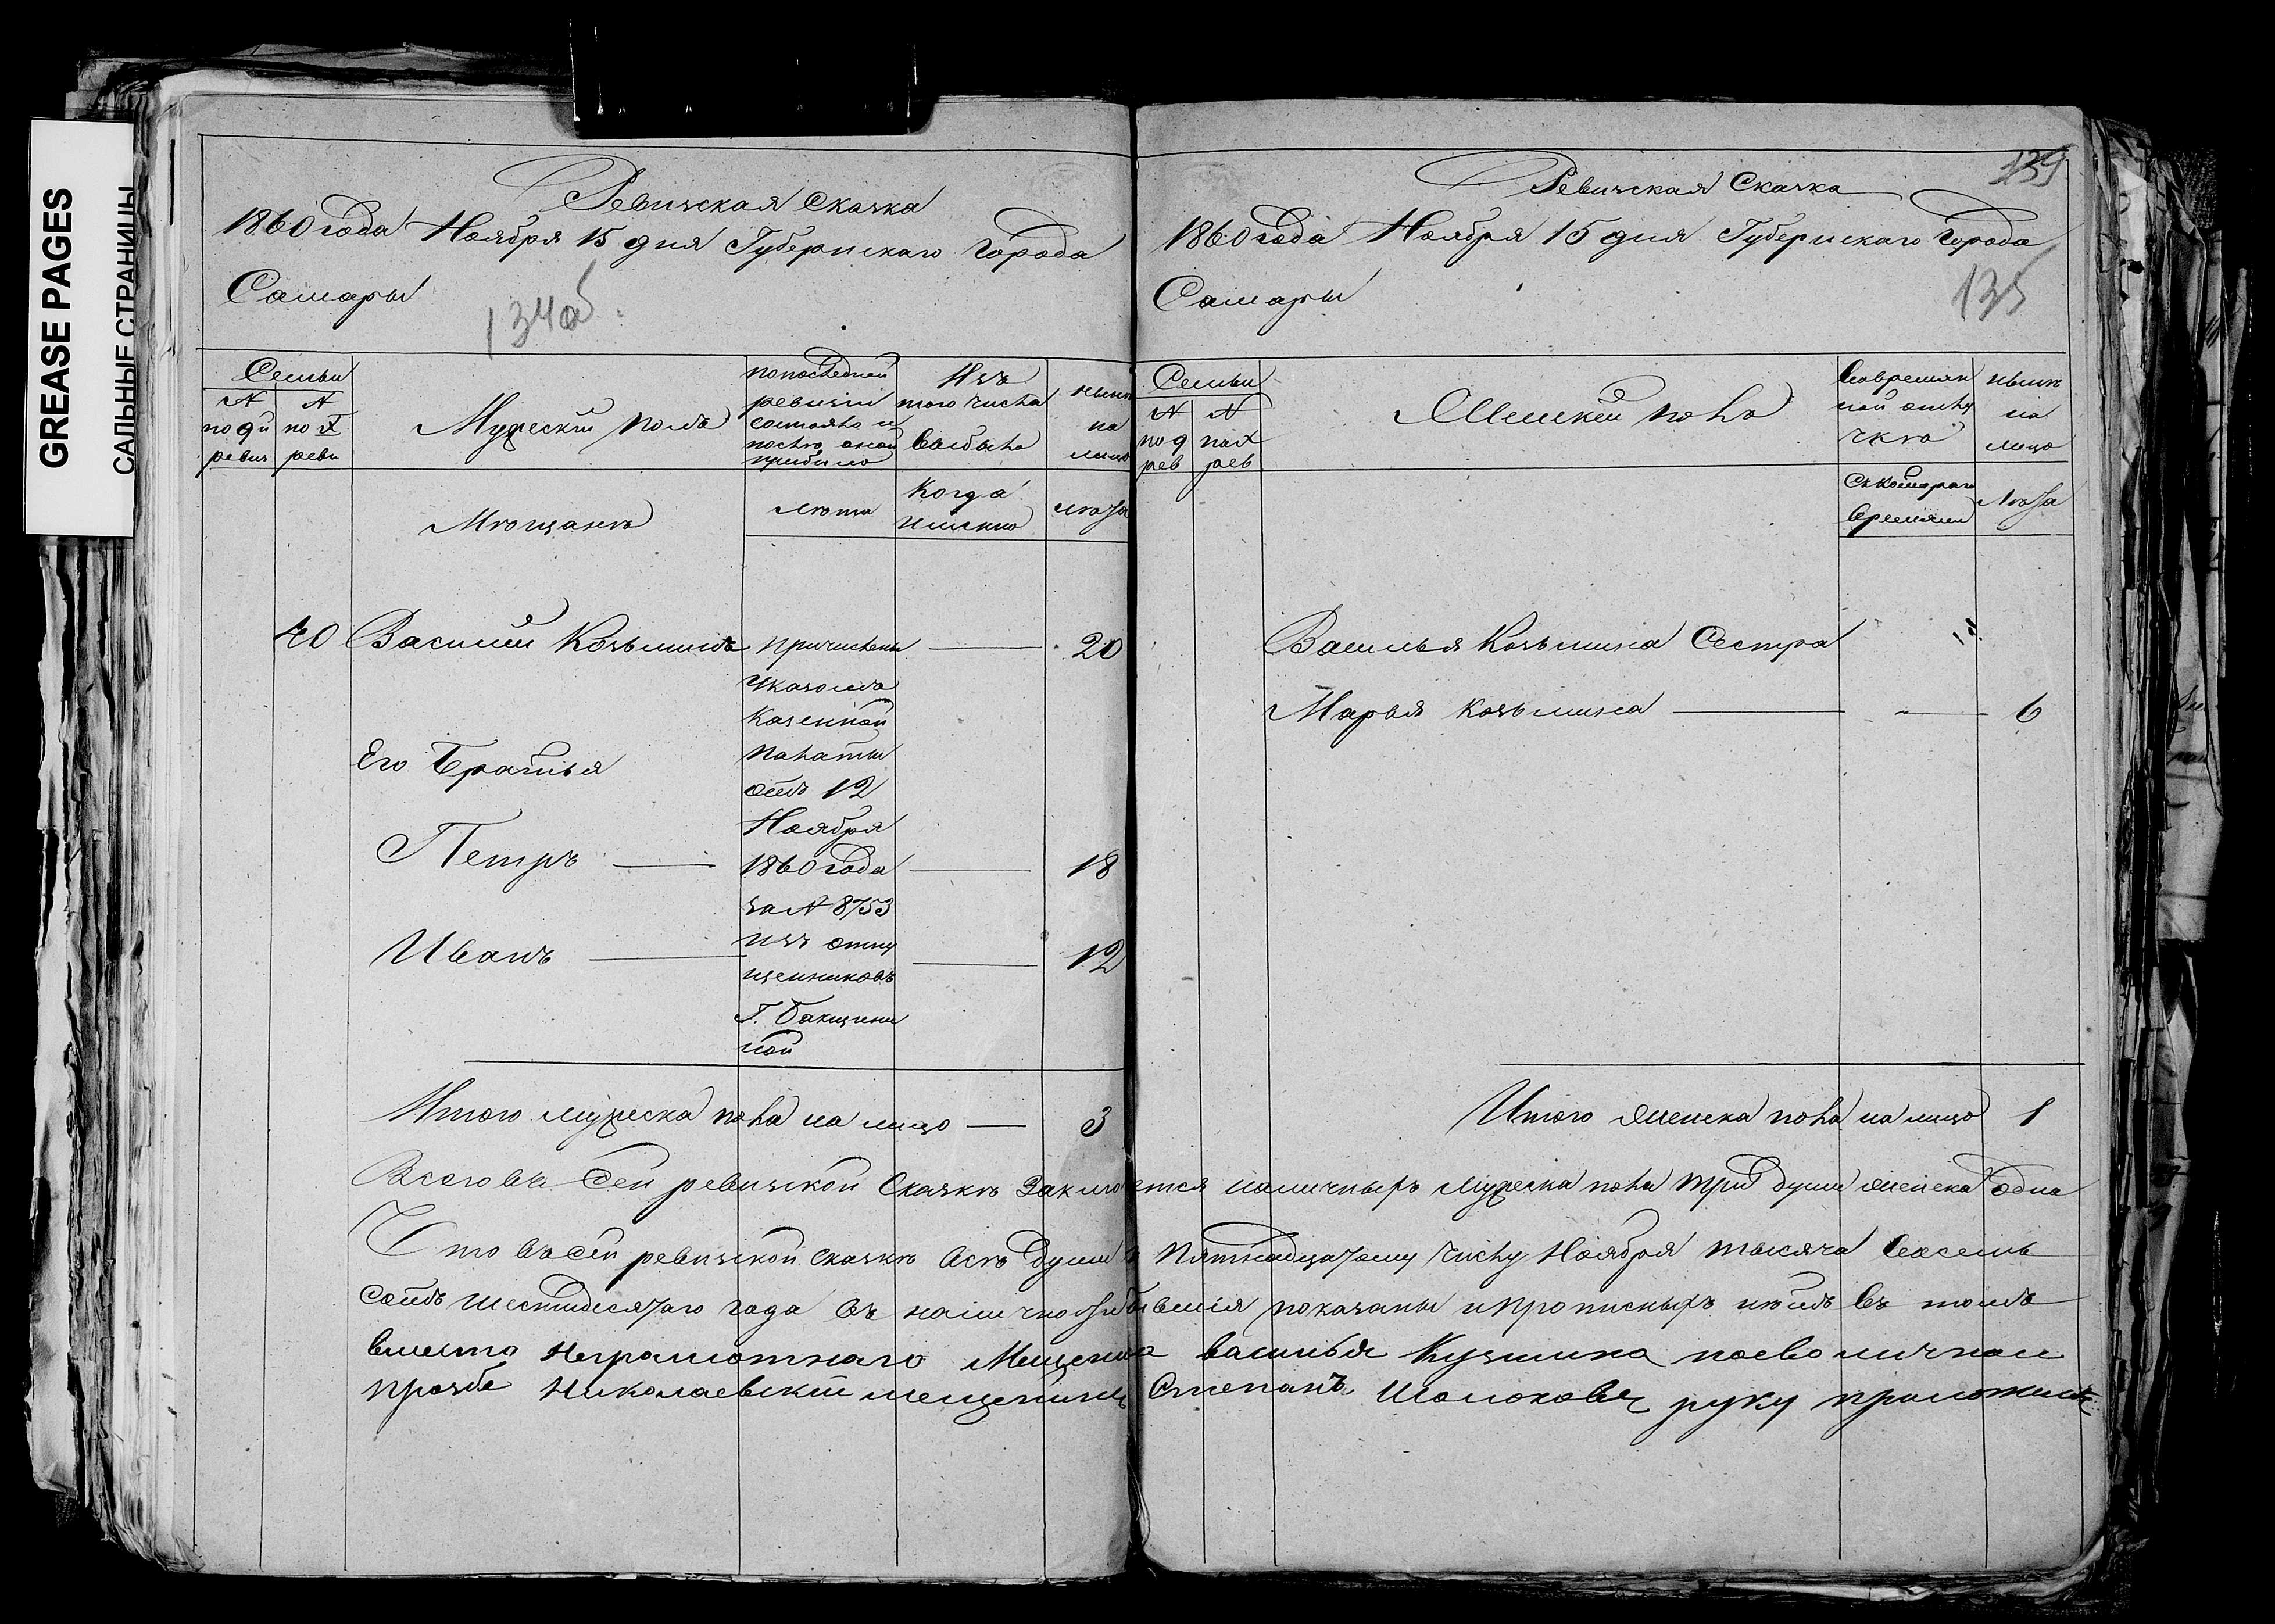 GREASE PAGES
САЛЬНЫЕ СТРАНИЦЫ
Ревизская Сказка
1860 года Ноября 15 дня Губернскаго города
Самары
134об.
Семьи
№ по 9й ревиз
№ по X реви
Мужескій полъ
по последней ревизіи состояло и после оной прибыло
Изъ того числа выбыло
ныне на лицо
Мещане
лета
Когда именно
лета
40 Василий Козьминъ причислены — 20
указомъ
Казенной
Его Братья
палаты
отъ 12
Ноября
Петръ — 1860 года — 18
за № 8753
Иванъ — изъ отпу — 12
щенниковъ
Г. Бакщини
ной
Итого мужеска пола на лицо — 3
Ревизская Сказка
139
1860 года Ноября 15 дня Губернскаго города
Самары
135
Семьи
№ по 9 рев
№ по X рев
Женскій полъ
Во времян ной отлу чке
ныне на лицо
Съ котораго времяни
Лета
Василья Козьмина Сестра "
Марья Козьмина — — 6
Итого женска пола на лицо 1
Всего въ сей ревизской Сказке Заключается наличныхъ мужеска пола три души женска одна
Что въ сей ревизской сказке все души к Пятнадцатому числу Ноября тысяча восемь
сотъ шестидесятаго года въ наличности бывшія показаны и прописныхъ нетъ въ томъ
вместо Неграмотнаго Мещенина василья Кузмина поево личной
прозбе Николаевскій мещенинъ Степанъ Шолоховъ руку приложилъ